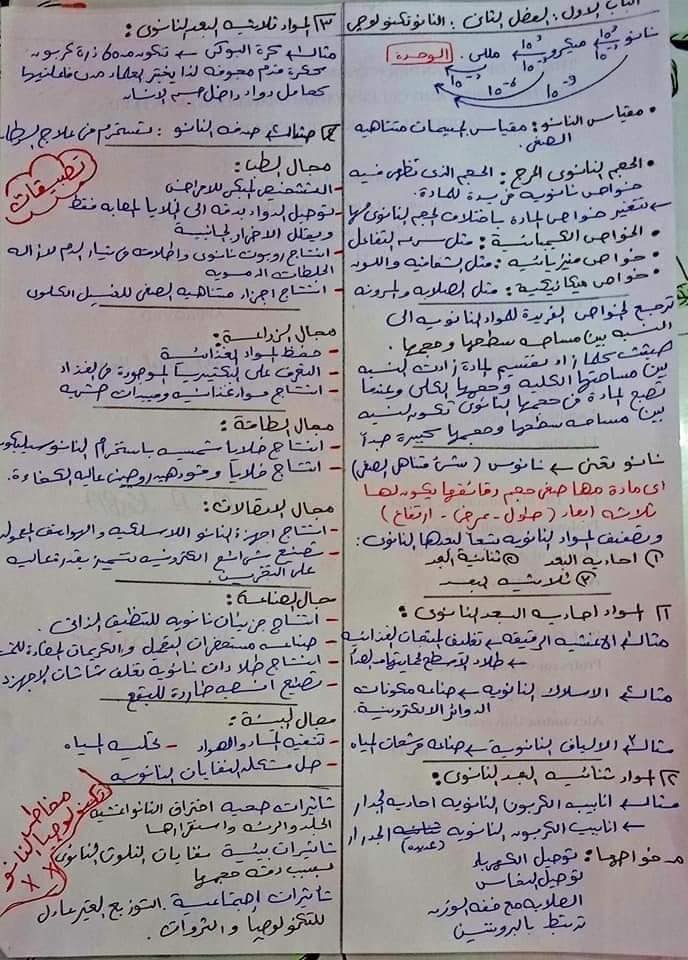 الباب الاول: الفصل الثانى: النانوتكنولوجى
نانو 10³ ميكرو 10³ مللى 10³ الوحدة
10⁻³ 10⁻³ 10⁻³
10⁻⁶
10⁻⁹
• مقياس النانو: مقياس لجسيمات متناهيه
الصغر.
• الحجم النانوى الحرج: الحجم الذى تظهر فيه
خواص نانويه فريدة للمادة.
← تتغير خواص المادة باختلاف الحجم النانوى لها
• الخواص الكيميائية: مثل سرعه التفاعل
• خواص فيزيائية: مثل الشفافيه واللون
• خواص ميكانيكية: مثل الصلابه والمرونه
ترجع الخواص الفريدة للمواد النانويه الى
النسبه بين مساحه سطحها وحجمها.
حيث كلما زاد تقسيم المادة زادت النسبه
بين مساحتها الكليه وحجمها الكلى وعندما
تصبح المادة فى حجمها النانوى تكون النسبه
بين مساحه سطحها وحجمها كبيرة جداً
نانو تعنى ← نانوس (شئ متناهى الصغر)
اى مادة مهما صغر حجم دقائقها يكون لها
ثلاثه ابعاد (طول - عرض - ارتفاع)
وتصنف المواد النانويه تبعاً لبعدها النانوى:
① احاديه البعد ② ثنائية البعد
③ ثلاثيه البعد
١] المواد احاديه البعد النانوى:
مثال ← الاغشيه الرقيقه ← تغليف المنتجات الغذائيه
← طلاء الاسطح لحمايتها من الصدأ
مثال ← الاسلاك النانويه ← صناعه مكونات
الدوائر الالكترونية.
مثال ٣ الالياف النانويه ← صناعه مرشحات المياه
٢] المواد ثنائيه البعد النانوى:
مثال ← انابيب الكربون النانويه احاديه الجدار
← انابيب الكربون النانويه (عديده) الجدار
من خواصها: توصيل الكهرباء
توصيل النحاس
الصلابه مع خفه الوزن
ترتبط بالبروتين
٣] المواد ثلاثيه البعد النانوى:
مثال ← كرة البوكى ← تتكون من 60 ذرة كربون
كرة مجوفه لذا يختبر العلماء مدى فاعليتها
كحامل دواء داخل جسم الانسان
مثال ← صدفه النانو: تستخدم فى علاج السرطان
تطبيقات
مجال الطب:
- التشخيص المبكر للامراض
- توصيل الدواء بدقه الى الخلايا المصابه فقط
ويقلل الاضرار الجانبية
- انتاج روبوت نانوى واطلاقه فى تيار الدم لازاله
الجلطات الدمويه
- انتاج اجهزة متناهيه الصغر للغسيل الكلوى
مجال الزراعة:
- حفظ المواد الغذائية
- التعرف على البكتيريا الموجودة فى الغذاء
- انتاج مواد غذائيه ومبيدات حشريه
مجال الطاقة:
- انتاج خلايا شمسيه باستخدام النانو سيليكون
- انتاج خلايا وقود هيدروجينى عاليه الكفاءة.
مجال الاتصالات:
- انتاج اجهزة النانو اللاسلكيه والهواتف المحموله
- تصنيع شرائح الكترونيه تتميز بقدرة عاليه
على التخزين.
مجال الصناعة:
- انتاج جزيئات نانويه للتنظيف الذاتى.
- صناعه مستحضرات التجميل والكريمات المضادة للشمس
- انتاج طلاءات نانويه تغلف شاشات الاجهزة
- تصنيع انسجه طاردة للبقع
مجال البيئة:
- تنقيه الماء والهواء - تحليه المياه
- حل مشكله النفايات النانويه
مخاطر
تكنولوجيا النانو
X X
تأثيرات صحيه اختراق النانو اغشيه
الجلد والرئه واستقرارها
تأثيرات بيئية نفايات التلوث النانوى
بسبب دقه حجمها
تأثيرات اجتماعية التوزيع الغير عادل
للتكنولوجيا والثروات.